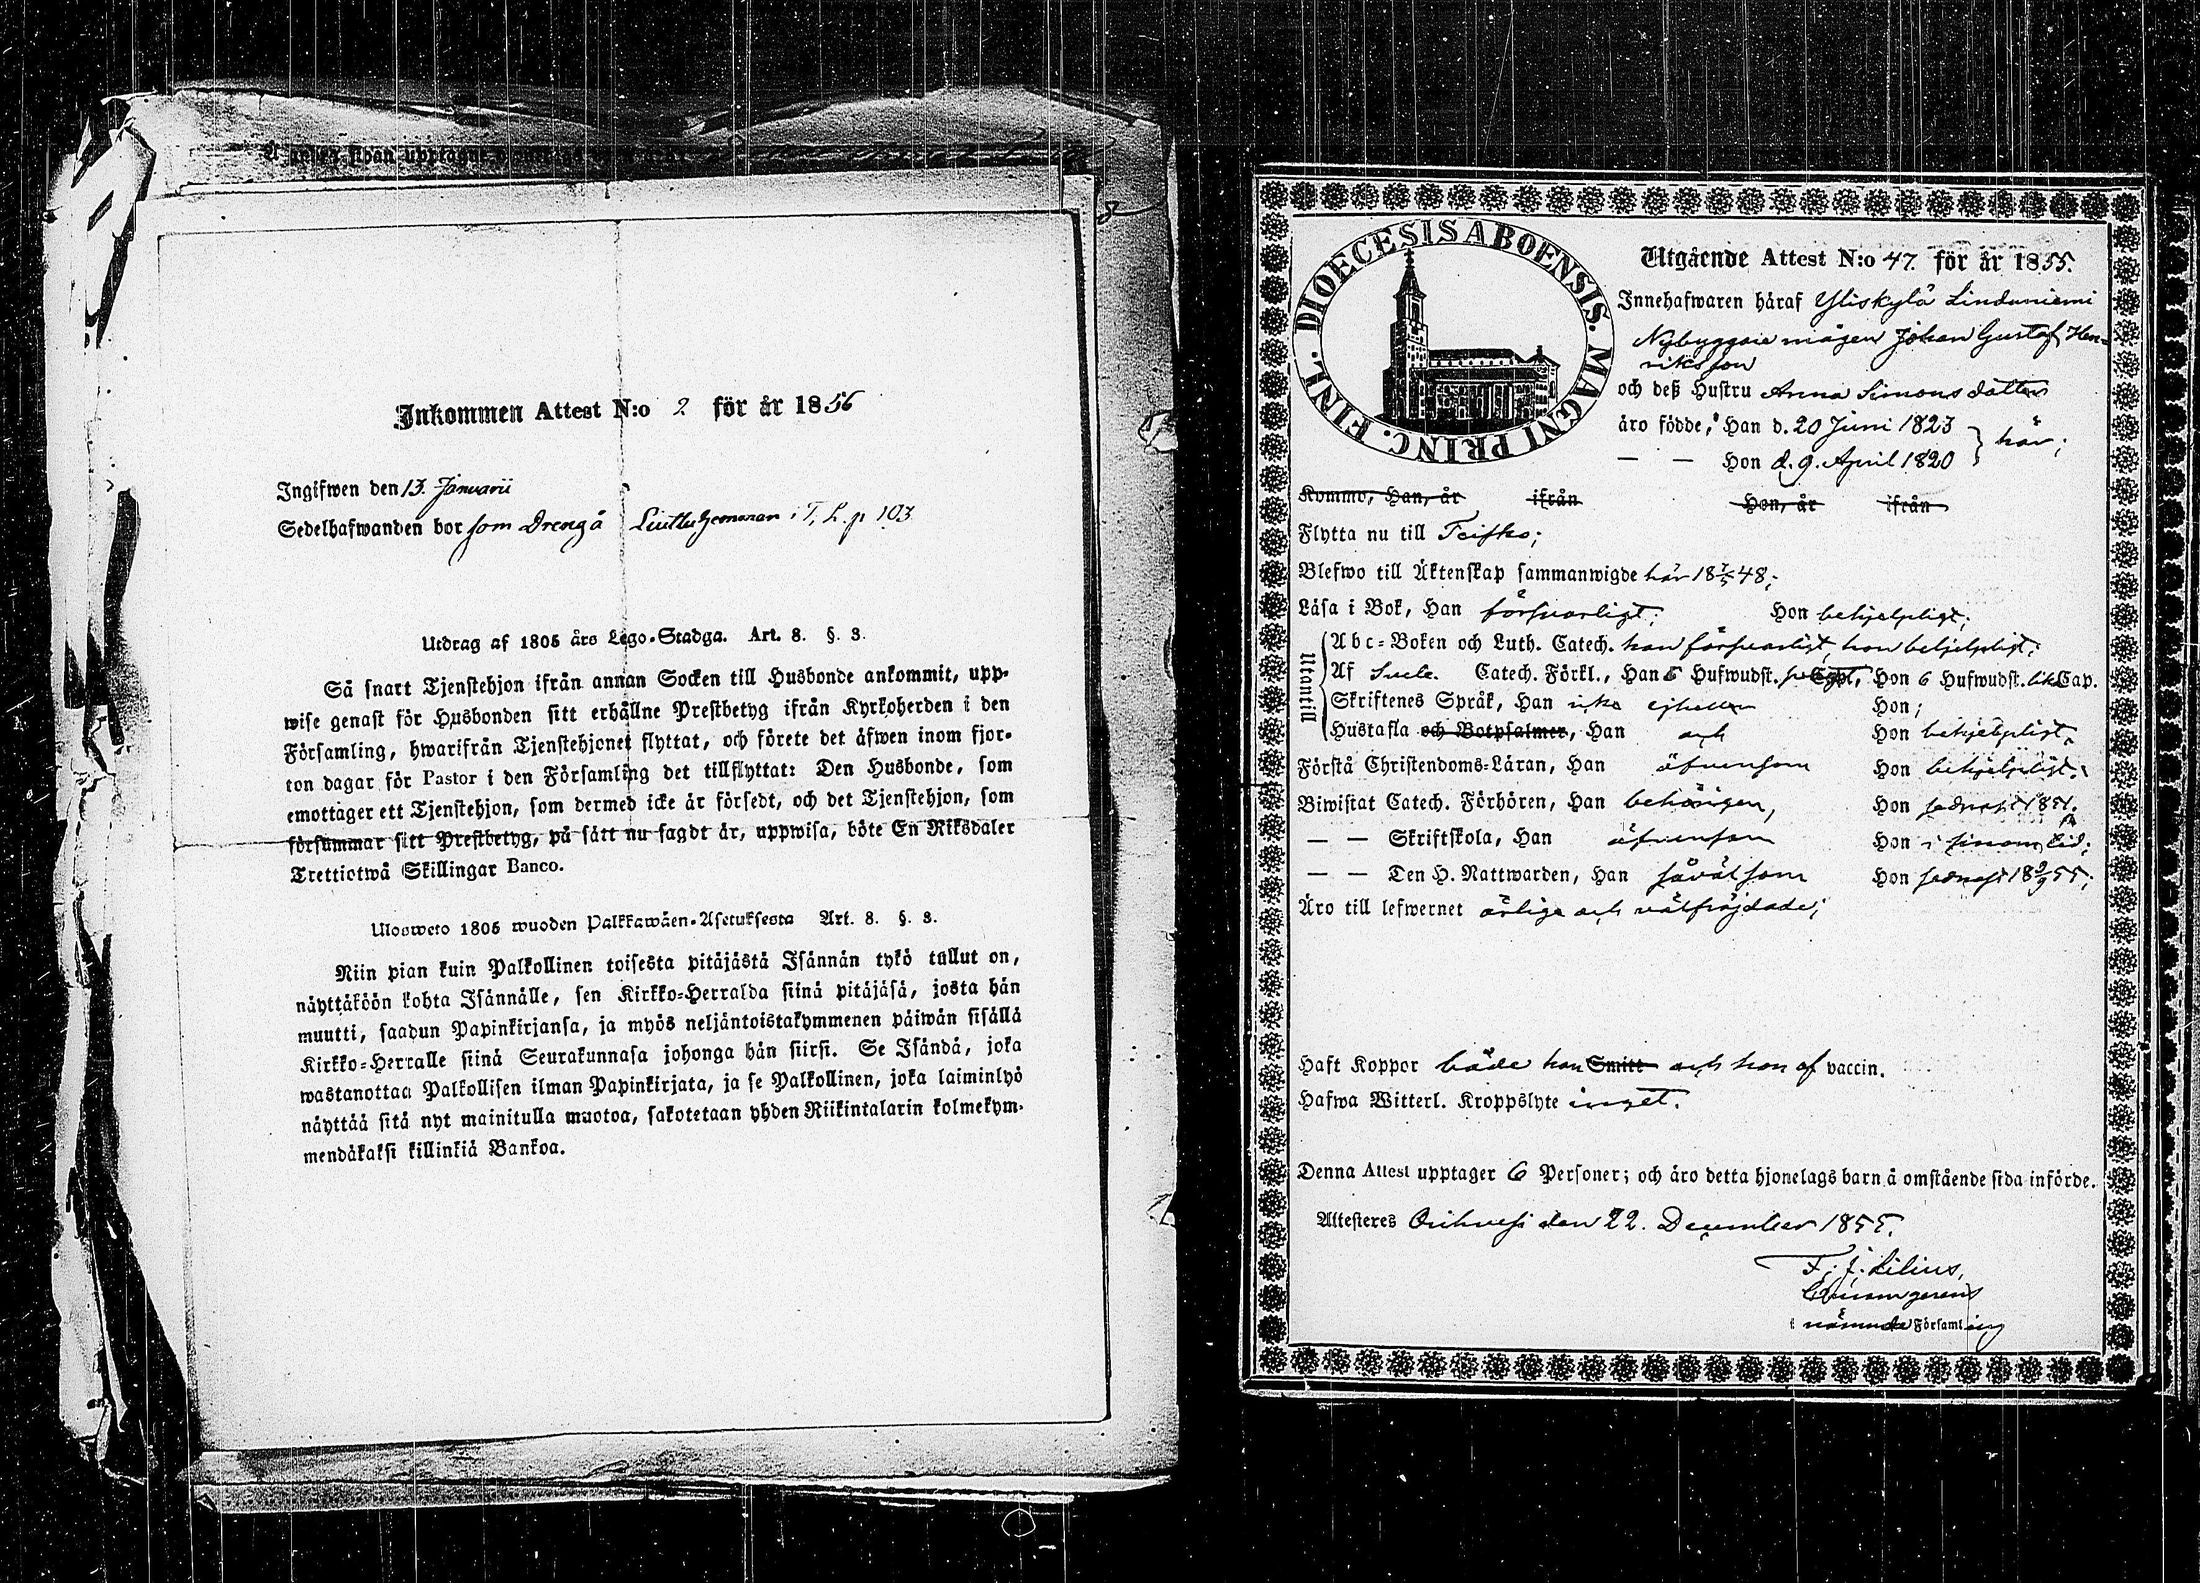 Inkommen Attest N:o 2 för år 1856
Ingifwen den 13. Januarii
Sedelhafwanden bor som Dreng å i T, L. p 103
Utdrag af 1805 års Lego-Stadga. Art. 8. §. 3.
Så snart Tjenstehjon ifrån annan Socken till Husbonde ankommit, upp-
wise genast för Husbonden sitt erhållne Prestbetyg ifrån Kyrkoherden i den
Församling, hwarifrån Tjenstehjonet flyttat, och förete det äfwen inom fjor-
ton dagar för Pastor i den Församling det tillflyttat: Den Husbonde, som
emottager ett Tjenstehjon, som dermed icke är försedt, och det Tjenstehjon, som
försummar sitt Prestbetyg, på sätt nu sagdt är, uppwisa, böte En Riksdaler
Trettiotwå Skillingar Banco.
Ulosweto 1805 wuoden Palkkawäen-Asetuksesta Art. 8. §. 3.
Niin pian kuin Palkollinen toisesta pitäjästä Isännän tykö tullut on,
näyttäköön kohta Isännälle, sen Kirkko-Herralda siinä pitäjäsä, josta hän
muutti, saadun Papinkirjansa, ja myös neljäntoistakymmenen päiwän sisällä
Kirkko-Herralle siinä Seurakunnasa johonga hän siirsi. Se Isändä, joka
wastanottaa Palkollisen ilman Papinkirjata, ja se Palkollinen, joka laiminlyö
näyttää sitä nyt mainitulla muotoa, sakotetaan yhden Riikintalarin kolmekym-
mendäkaksi killinkiä Bankoa.
DIOECESIS ABOENSIS. MAGNI PRINC. FINL.
Utgående Attest N:o 47. för år 1855.
Innehafwaren häraf Yliskylä Linduniemi
Nybyggare mågen Johan Gustaf Hen-
riksson
och deß Hustru Anna Simonsdatter
äro födde, Han d. 20 Juni 1823
— — Hon d. 9. April 1820 } här;
Kommo, Han, år ifrån Hon, år ifrån
Flytta nu till Teisko;
Blefwo till Äktenskap sammanwigde här 18 48;
Läsa i Bok, Han försvarligt; Hon behjelpligt;
Utantill
Abc-Boken och Luth. Catech. han försvarligt, hon behjelpligt;
Af Catech. Förkl., Han 6 Hufwudst. Hon 6 Hufwudst. Cap.
Skriftenes Språk, Han Hon;
Hustafla och Botpsalmer, Han och Hon behjelpligt,
Förstå Christendoms-Läran, Han äfvensom Hon behjelpligt;
Biwistat Catech. Förhören, Han behörigen, Hon sednast 1851.
— — Skriftskola, Han äfvensom Hon i sinom tid;
— — Den H. Nattwarden, Han såväl som Hon sednast 18 9/9 55;
Äro till lefwernet ärliga och välfrejdade;
Haft Koppor både han Smitt och hon af vaccin.
Hafwa Witterl. Kroppslyte inget.
Denna Attest upptager 6 Personer; och äro detta hjonelags barn å omstående sida införde.
Attesteres Orihvesi den 22. December 1855.
F. J. Lilius,
i nämnda Församling